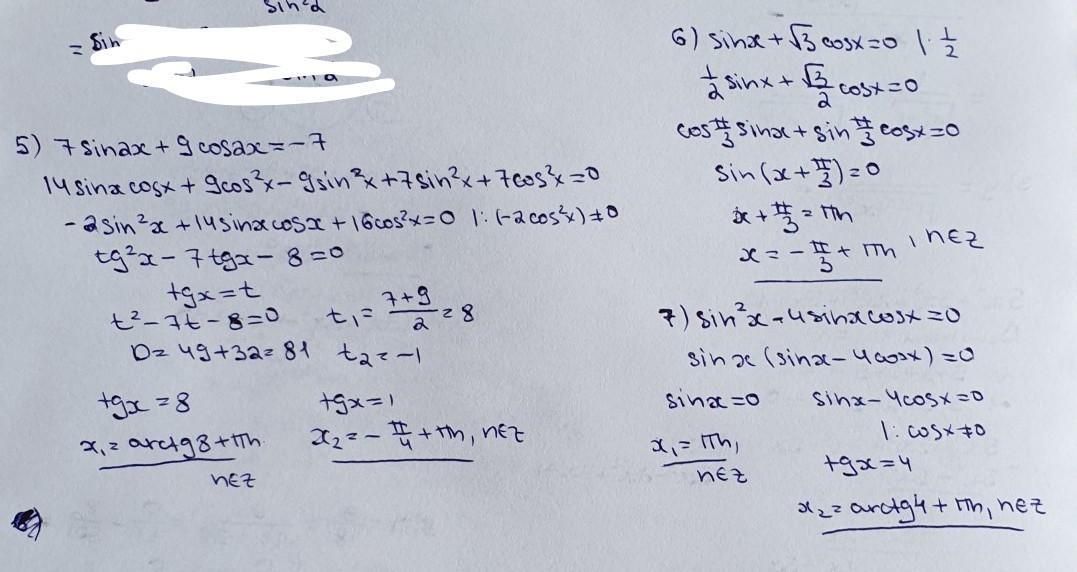 sin²α
= sin
5) 7sin2x + 9cos2x = -7
14sinx cosx + 9cos²x - 9sin²x + 7sin²x + 7cos²x = 0
-2sin²x + 14sinxcosx + 16cos²x = 0 |: (-2cos²x) ≠ 0
tg²x - 7tgx - 8 = 0
tgx = t
t² - 7t - 8 = 0 t₁ = (7+9)/2 = 8
D = 49 + 32 = 81 t₂ = -1
tgx = 8 tgx = 1
x₁ = arctg8 + πn x₂ = -π/4 + πn, n∈Z
n∈Z
6) sinx + √3 cosx = 0 |· 1/2
1/2 sinx + √3/2 cosx = 0
cos π/3 sinx + sin π/3 cosx = 0
sin(x + π/3) = 0
x + π/3 = πn
x = -π/3 + πn, n∈Z
7) sin²x - 4sinxcosx = 0
sinx (sinx - 4cosx) = 0
sinx = 0 sinx - 4cosx = 0
|: cosx ≠ 0
x₁ = πn,
n∈Z
tgx = 4
x₂ = arctg4 + πn, n∈Z